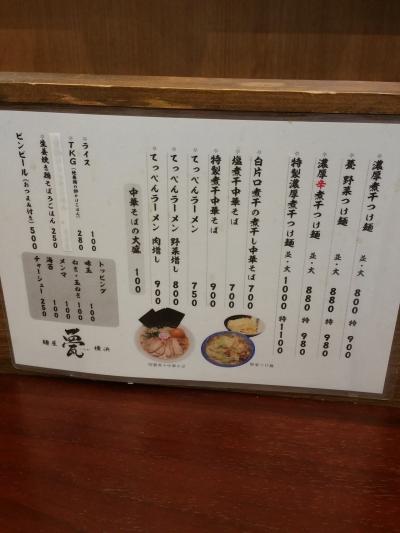 濃厚煮干つけ麺 並・大 800 特 900
甕 野菜つけ麺 並・大 880 特 980
濃厚辛煮干つけ麺 並・大 880 特 980
特製濃厚煮干つけ麺 並・大 1000 特 1100
白片口煮干の煮干し中華そば 700
塩煮干中華そば 700
特製煮干中華そば 900
てっぺんラーメン 750
てっぺんラーメン 野菜増し 800
てっぺんラーメン 肉増し 900
中華そばの大盛 100
ライス 100
TKG 280
生姜焼き鶏そぼろごはん 250
ビンビール(おつまみ付き) 500
トッピング
味玉 100
ねぎ・玉ねぎ 100
メンマ 100
海苔 100
チャーシュー 250
麺屋 甕 横浜